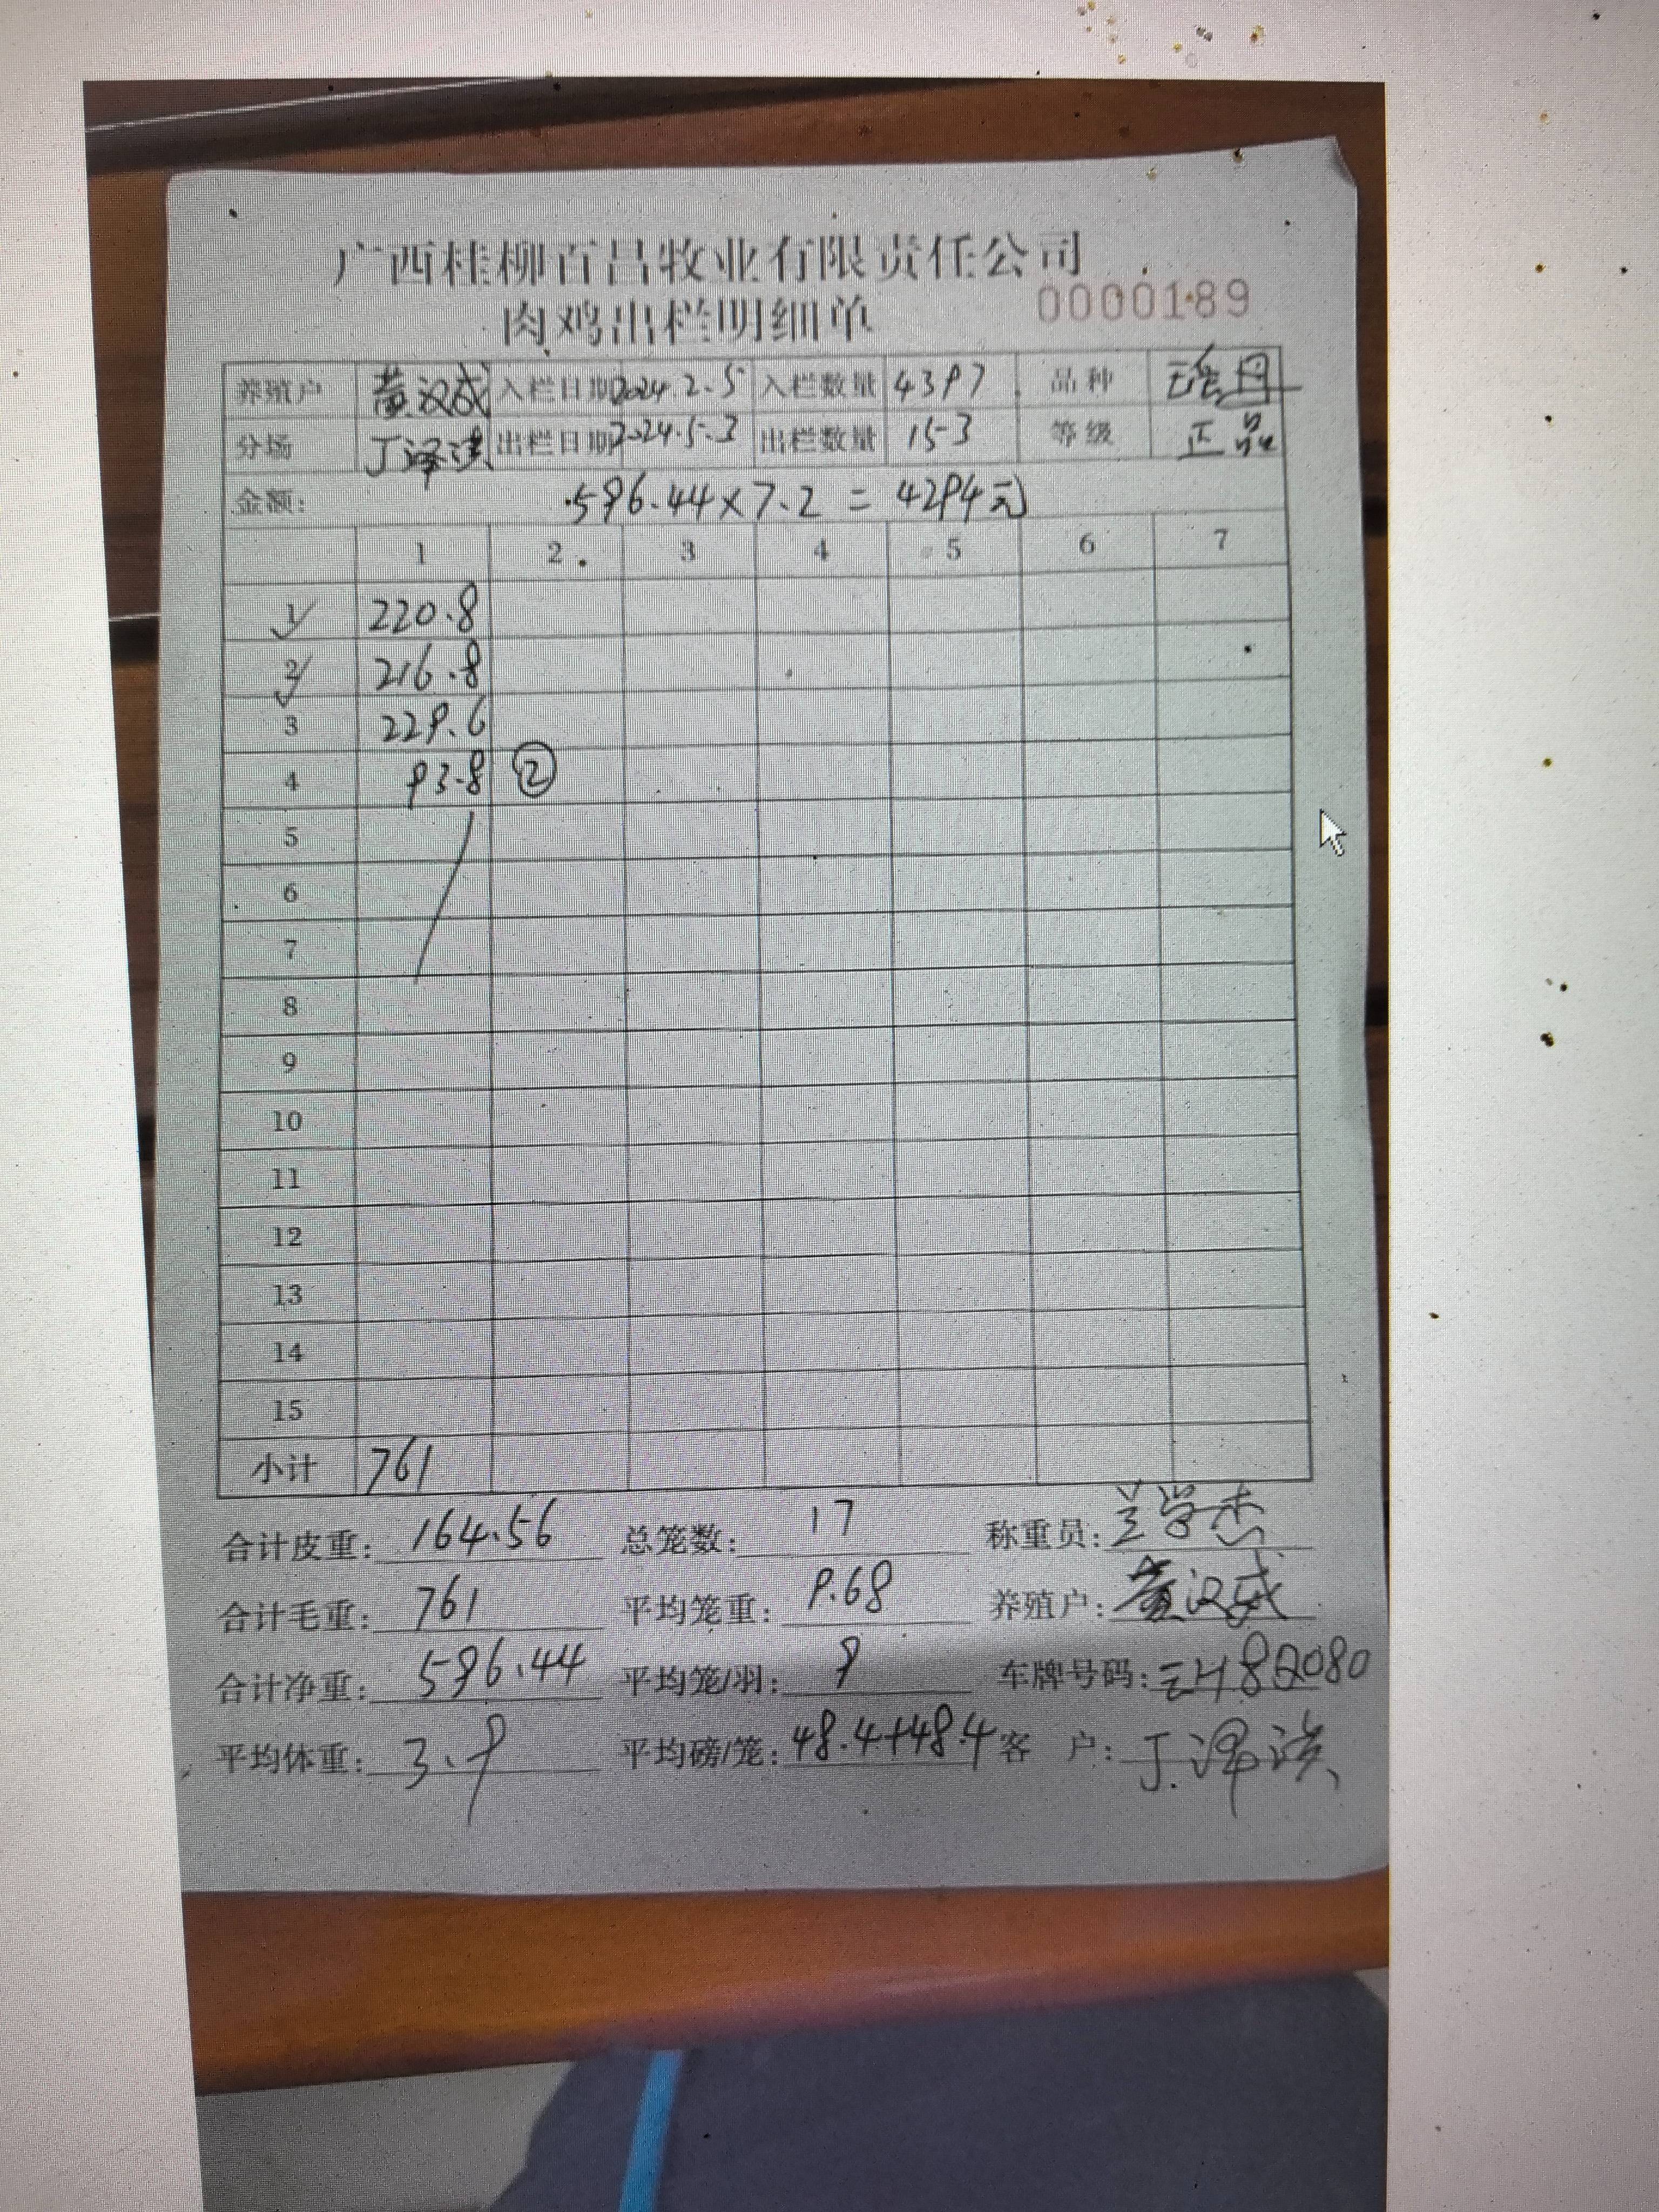 广西桂柳百昌牧业有限责任公司
肉鸡出栏明细单 0000189
养殖户 黄汉成 入栏日期 2024.2.5 入栏数量 4397 品种
分场 丁泽洪 出栏日期 2024.5.3 出栏数量 153 等级 正品
金额: 596.44×7.2=4294元
1 2 3 4 5 6 7
1 220.8
2 216.8
3 229.6
4 93.8 ②
5
6
7
8
9
10
11
12
13
14
15
小计 761
合计皮重: 164.56 总笼数: 17 称重员: 兰学杰
合计毛重: 761 平均笼重: 9.68 养殖户: 黄汉成
合计净重: 596.44 平均笼/羽: 9 车牌号码:
平均体重: 3.9 平均磅/笼: 48.4+48.4 客户: 丁泽洪